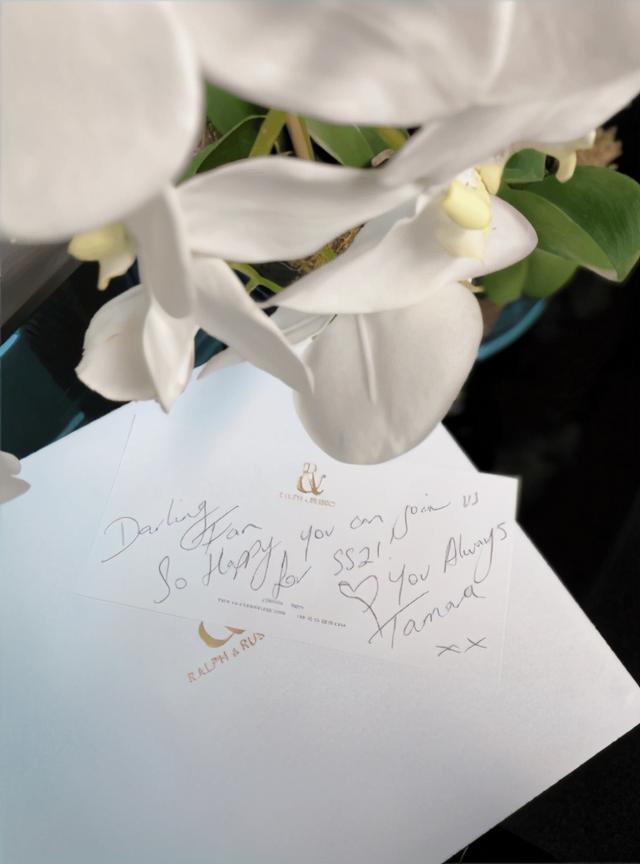 &
RALPH & RUSSO
Darling
Fran
So Happy you can join us
for SS21!
♡ You Always
Tamara
xx
LONDON PARIS
RALPH & RUS